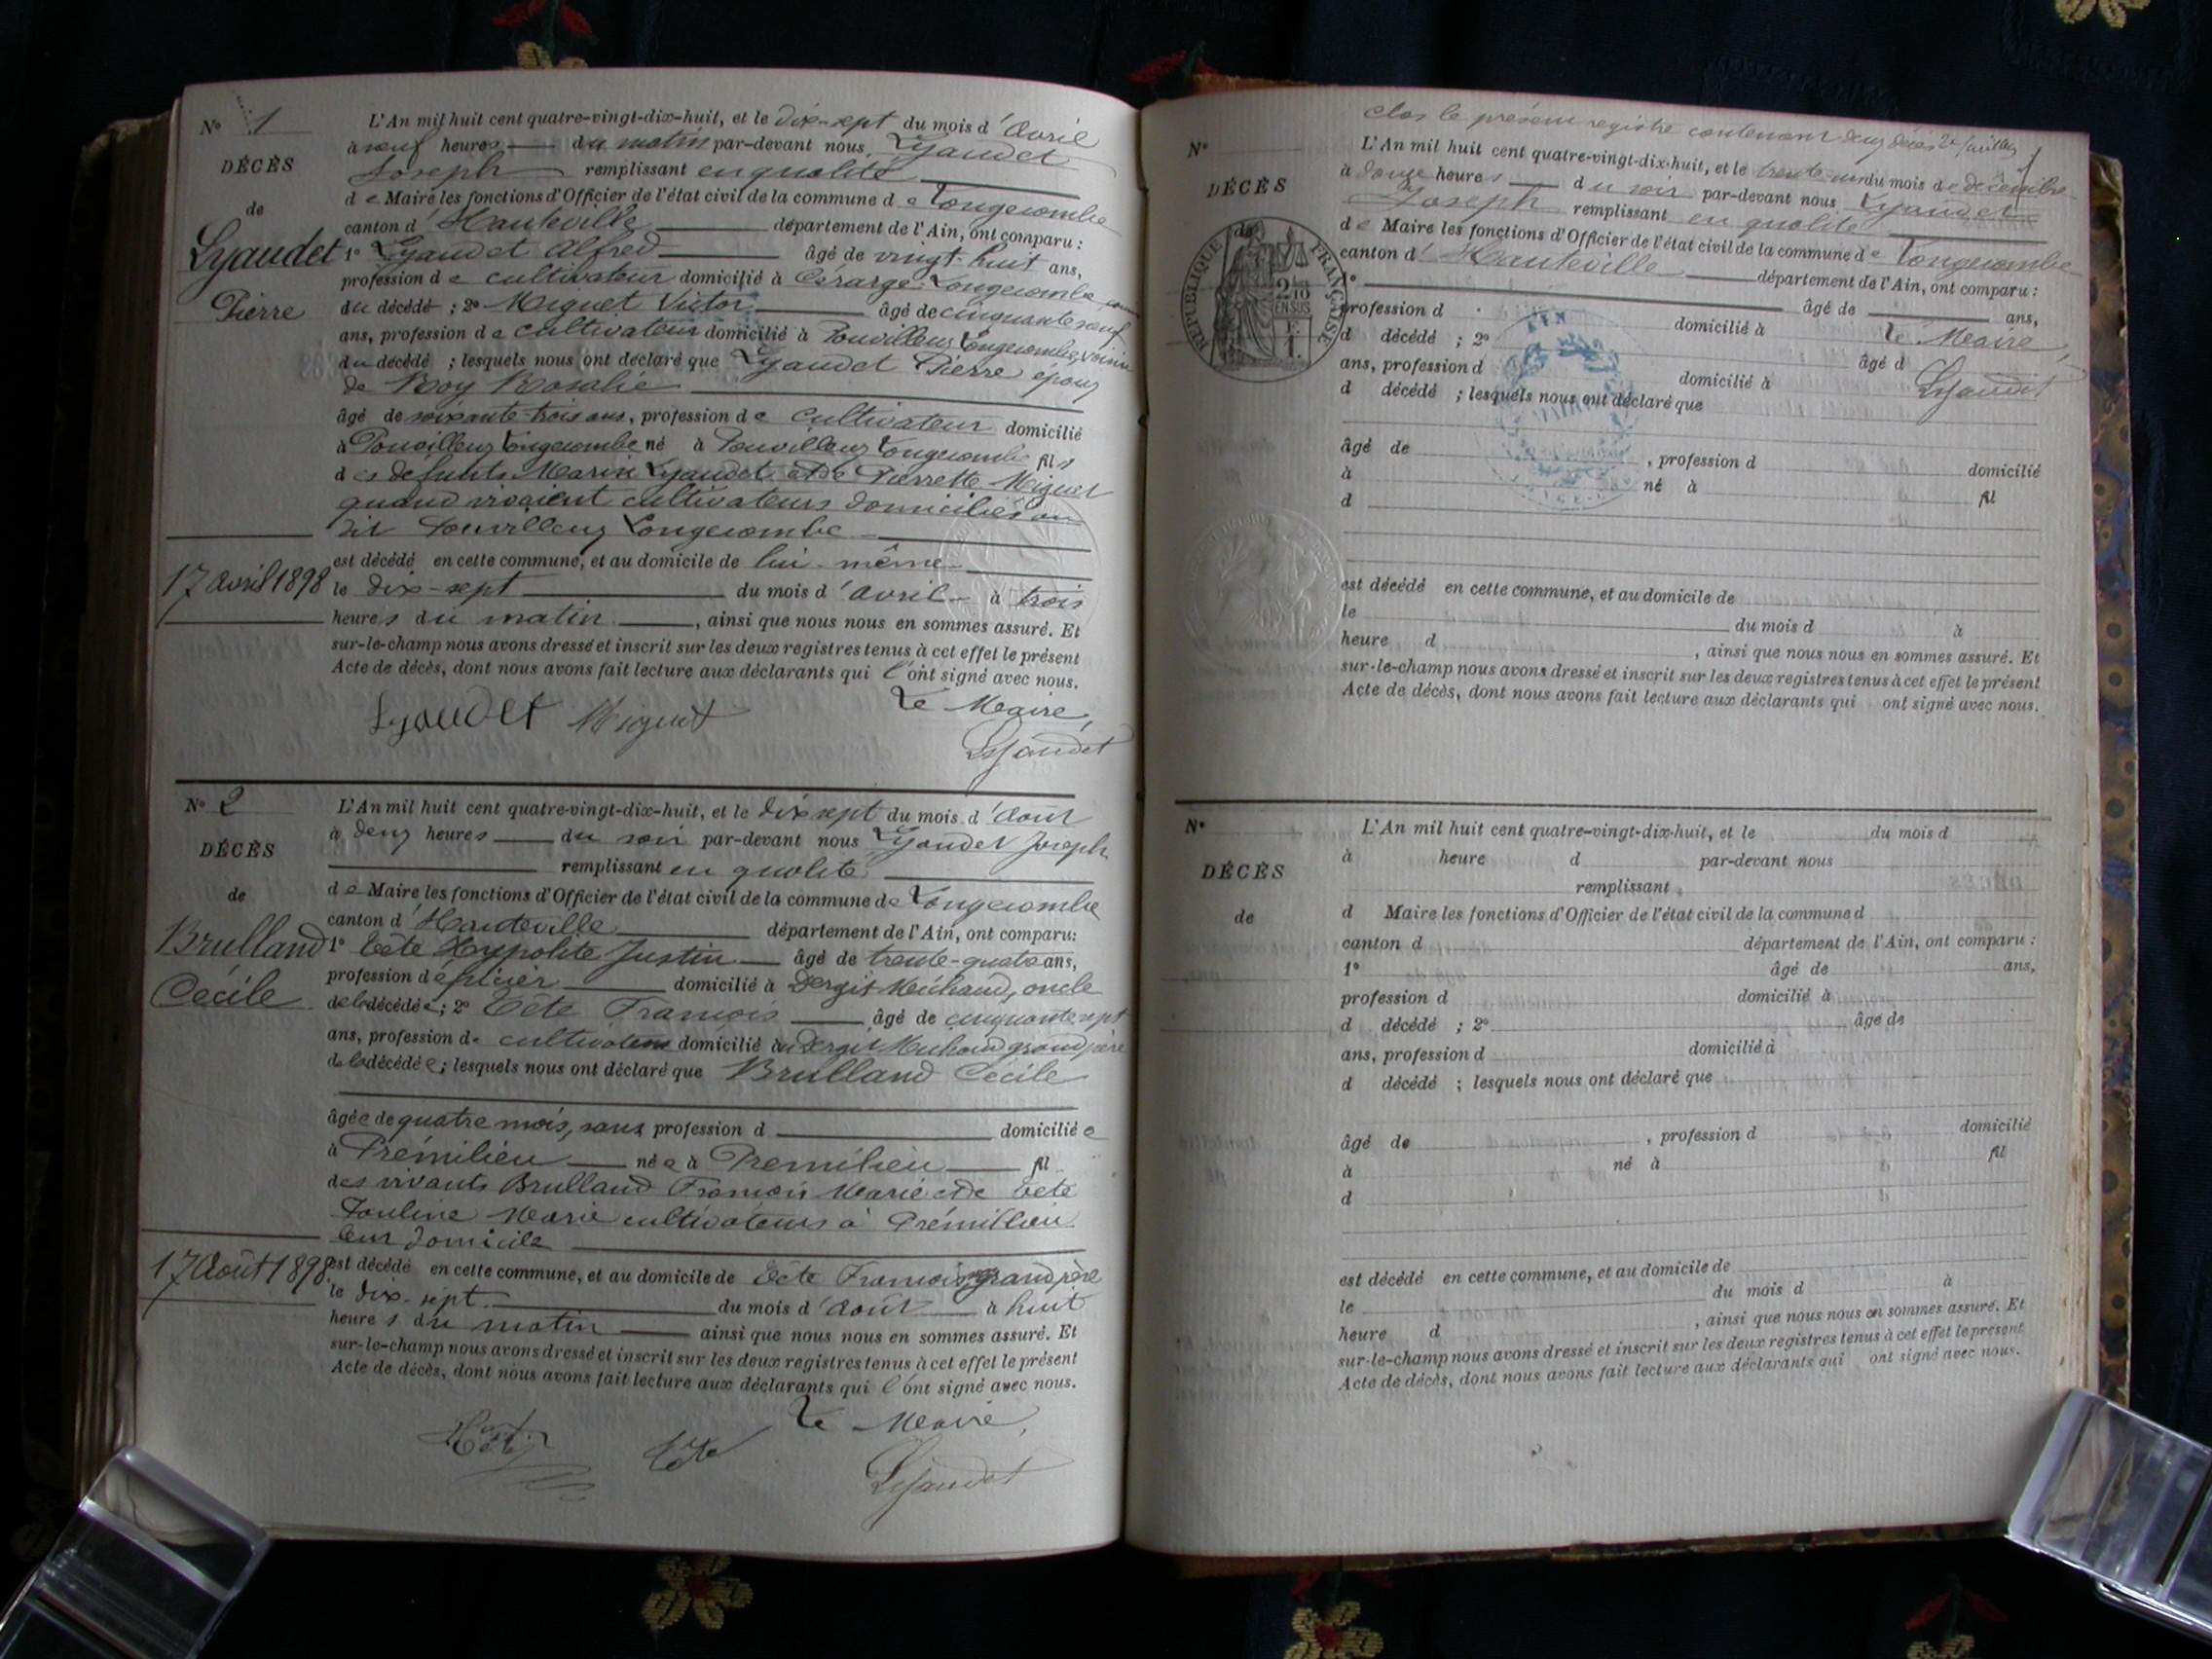 N° 1
DÉCÈS
de
Lyaudet
Pierre
17 avril 1898
L'An mil huit cent quatre-vingt-dix-huit, et le dix-sept du mois d'Avril
à neuf heures du matin par-devant nous Lyaudet
Joseph remplissant en qualité
de Maire les fonctions d'Officier de l'état civil de la commune de Longecombe
canton d'Hauteville département de l'Ain, ont comparu :
1° Lyaudet Alfred âgé de vingt-huit ans,
profession de cultivateur domicilié à Cérarge Longecombe
du décédé ; 2° Miguet Victor âgé de cinquante neuf
ans, profession de cultivateur domicilié à Pouvilleux Longecombe, voisin
du décédé ; lesquels nous ont déclaré que Lyaudet Pierre époux
de Roy Rosalie
âgé de soixante-trois ans, profession de cultivateur domicilié
à Pouvilleux Longecombe né à Pouvilleux Longecombe fils
des defunts Marin Lyaudet et de Pierrette Miguet
quand vivaient cultivateurs domiciliés au
dit Pouvilleux Longecombe
est décédé en cette commune, et au domicile de lui-même
le dix-sept du mois d'avril à trois
heures du matin, ainsi que nous nous en sommes assuré. Et
sur-le-champ nous avons dressé et inscrit sur les deux registres tenus à cet effet le présent
Acte de décès, dont nous avons fait lecture aux déclarants qui l'ont signé avec nous.
Lyaudet Miguet Le Maire,
Lyaudet
N° 2
DÉCÈS
de
Brulland
Cécile
17 Août 1898
L'An mil huit cent quatre-vingt-dix-huit, et le dix sept du mois d'Août
à deux heures du soir par-devant nous Lyaudet Joseph
remplissant en qualité
de Maire les fonctions d'Officier de l'état civil de la commune de Longecombe
canton d'Hauteville département de l'Ain, ont comparu:
1° Tête Hypolite Justin âgé de trente-quatre ans,
profession d'épicier domicilié à Dergit Michaud, oncle
de la décédée ; 2° Tête François âgé de cinquante sept
ans, profession de cultivateur domicilié au Dergit Michaud grand père
de la décédée ; lesquels nous ont déclaré que Brulland Cécile
âgée de quatre mois, sans profession d domiciliée
à Prémilieu née à Premilieu fil
des vivants Brulland François Marie et de Tête
Pauline Marie cultivateurs à Prémillieu
leur domicile
est décédé en cette commune, et au domicile de Tête François grand père
le dix-sept du mois d'Août à huit
heures du matin ainsi que nous nous en sommes assuré. Et
sur-le-champ nous avons dressé et inscrit sur les deux registres tenus à cet effet le présent
Acte de décès, dont nous avons fait lecture aux déclarants qui l'ont signé avec nous.
Tête Le Maire,
Lyaudet
clos le présent registre contenant deux décès 2e feuillet
N°
DÉCÈS
de
RÉPUBLIQUE FRANÇAISE
2/10 EN SUS
L'An mil huit cent quatre-vingt-dix-huit, et le trente-un du mois de décembre
à douze heures du soir par-devant nous Lyaudet
Joseph remplissant en qualité
de Maire les fonctions d'Officier de l'état civil de la commune de Longecombe
canton d'Hauteville département de l'Ain, ont comparu :
1° âgé de ans,
profession d domicilié à Le Maire,
d décédé ; 2° âgé d
ans, profession d domicilié à Lyaudet
d décédé ; lesquels nous ont déclaré que
âgé de , profession d domicilié
à né à fil
d
est décédé en cette commune, et au domicile de
le du mois d à
heure d , ainsi que nous nous en sommes assuré. Et
sur-le-champ nous avons dressé et inscrit sur les deux registres tenus à cet effet le présent
Acte de décès, dont nous avons fait lecture aux déclarants qui ont signé avec nous.
N°
DÉCÈS
de
L'An mil huit cent quatre-vingt-dix-huit, et le du mois d
à heure d par-devant nous
remplissant
d Maire les fonctions d'Officier de l'état civil de la commune d
canton d département de l'Ain, ont comparu :
1° âgé de ans,
profession d domicilié à
d décédé ; 2° âgé de
ans, profession d domicilié à
d décédé ; lesquels nous ont déclaré que
âgé de , profession d domicilié
à né à fil
d
est décédé en cette commune, et au domicile de
le du mois d à
heure d , ainsi que nous nous en sommes assuré. Et
sur-le-champ nous avons dressé et inscrit sur les deux registres tenus à cet effet le présent
Acte de décès, dont nous avons fait lecture aux déclarants qui ont signé avec nous.